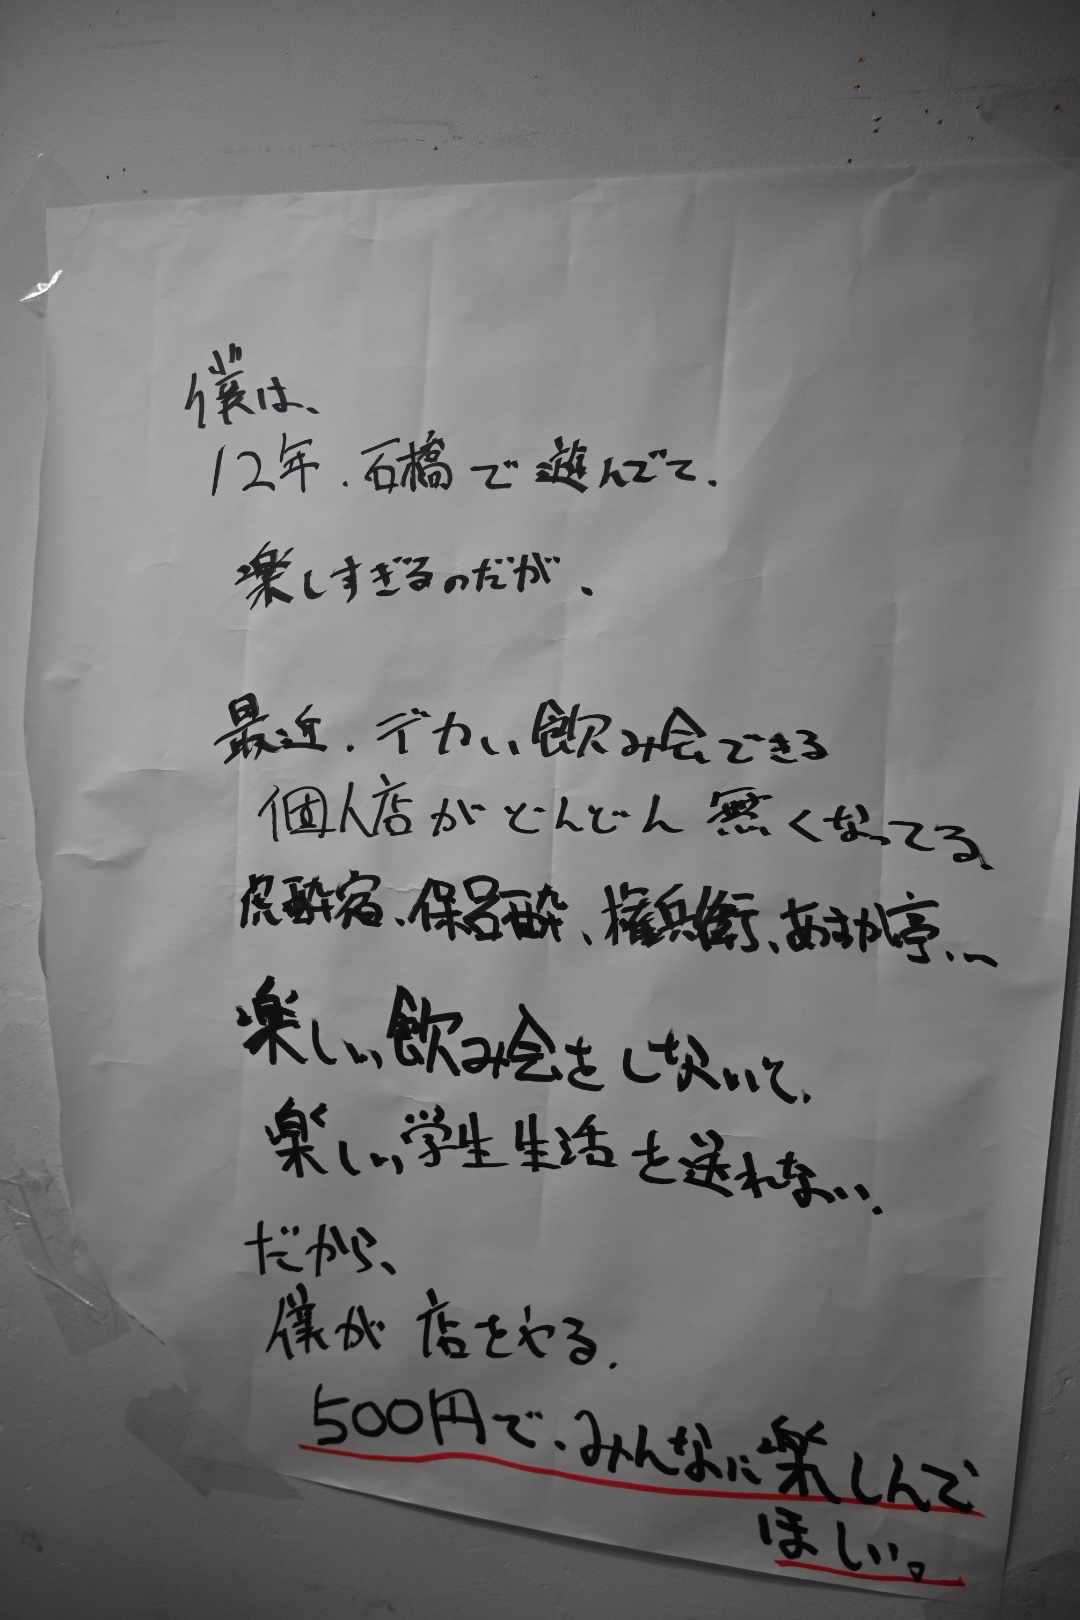 僕は、
12年、石橋で遊んでて、
楽しすぎるのだが、
最近、デカい飲み会できる
個人店がどんどん無くなってる、
虎酔宿、保呂酔、権兵衛、あすか亭、、〜
楽しい飲み会をしないと、
楽しい学生生活を送れない、
だから、
僕が店をやる、
500円で、みんなに楽しんで
ほしい。